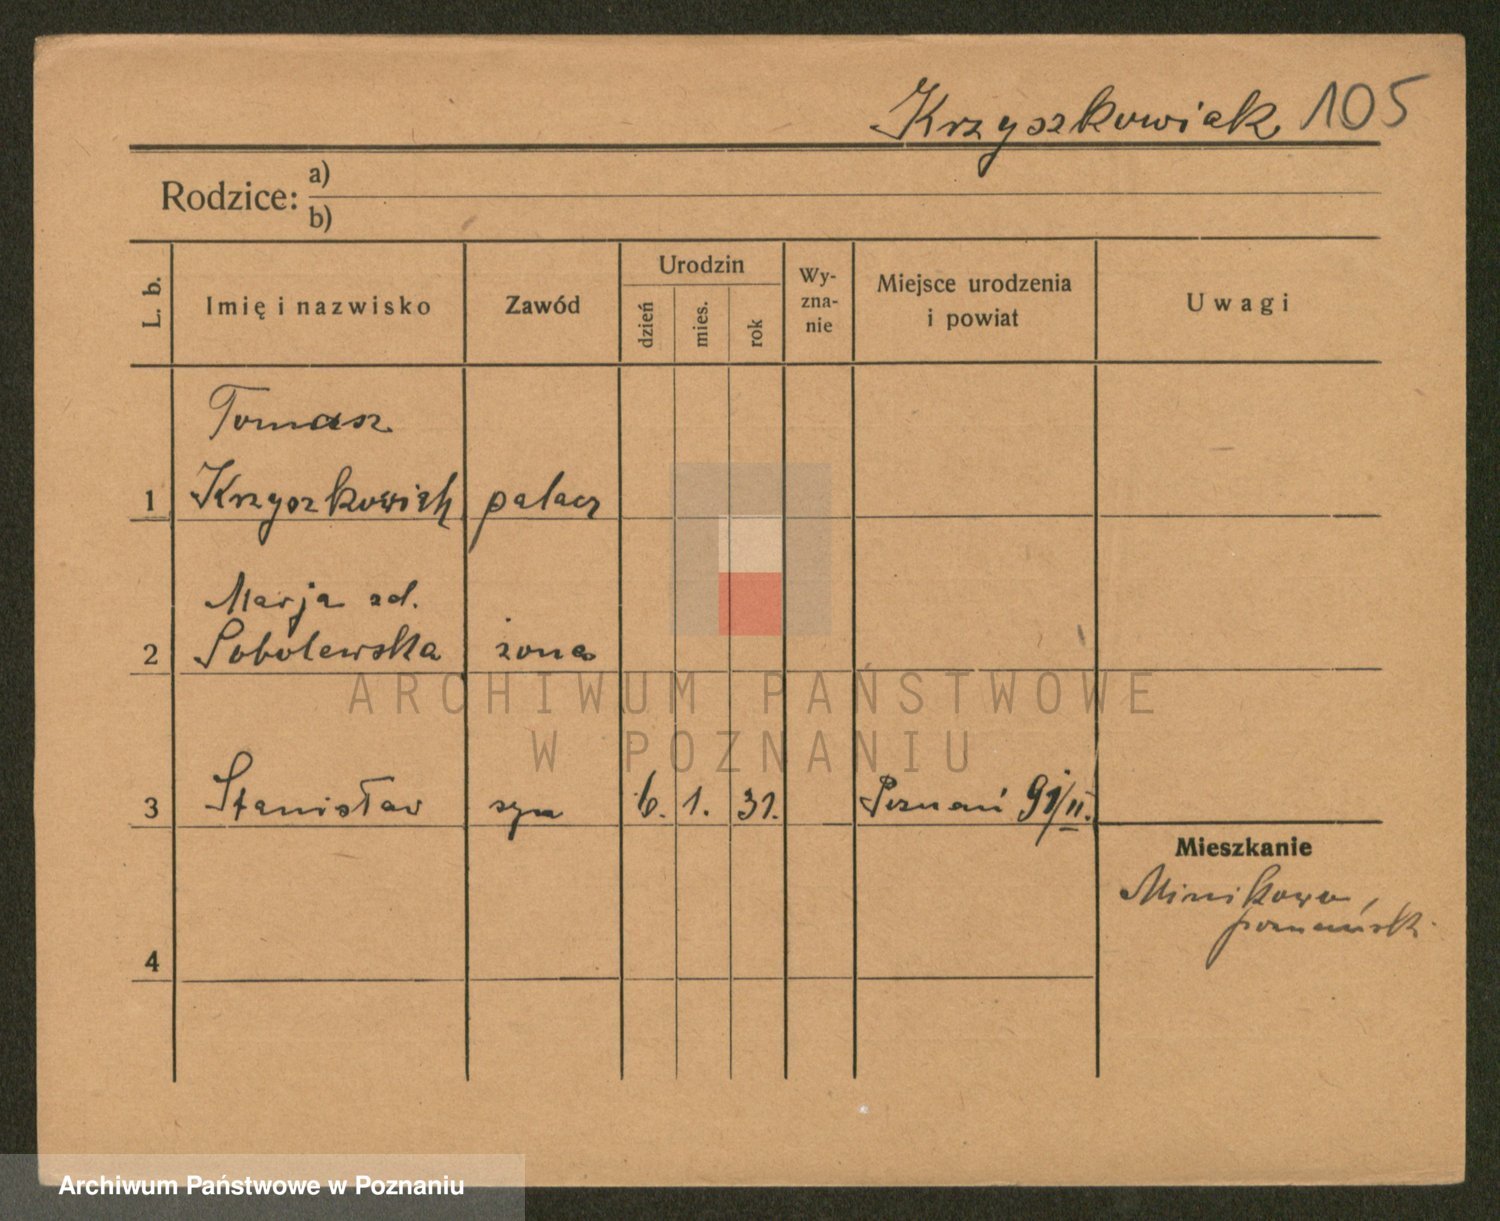 Krzyszkowiak 105
Rodzice: a)
b)
L. b.
Imię i nazwisko
Zawód
Urodzin
dzień
mies.
rok
Wy-
zna-
nie
Miejsce urodzenia
i powiat
Uwagi
Tomasz
1 Krzyszkowiak palacz
Marja zd.
2 Sobolewska żona
ARCHIWUM PAŃSTWOWE
W POZNANIU
3 Stanisław syn 6. 1. 31. Poznań 91/II.
Mieszkanie
Minikowo,
poznański
4
Archiwum Państwowe w Poznaniu